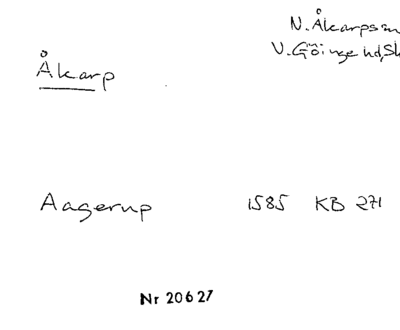 N. Åkarps sn
V. Göinge hd, Sk
Åkarp
Aagerup 1585 KB 271
Nr 20627